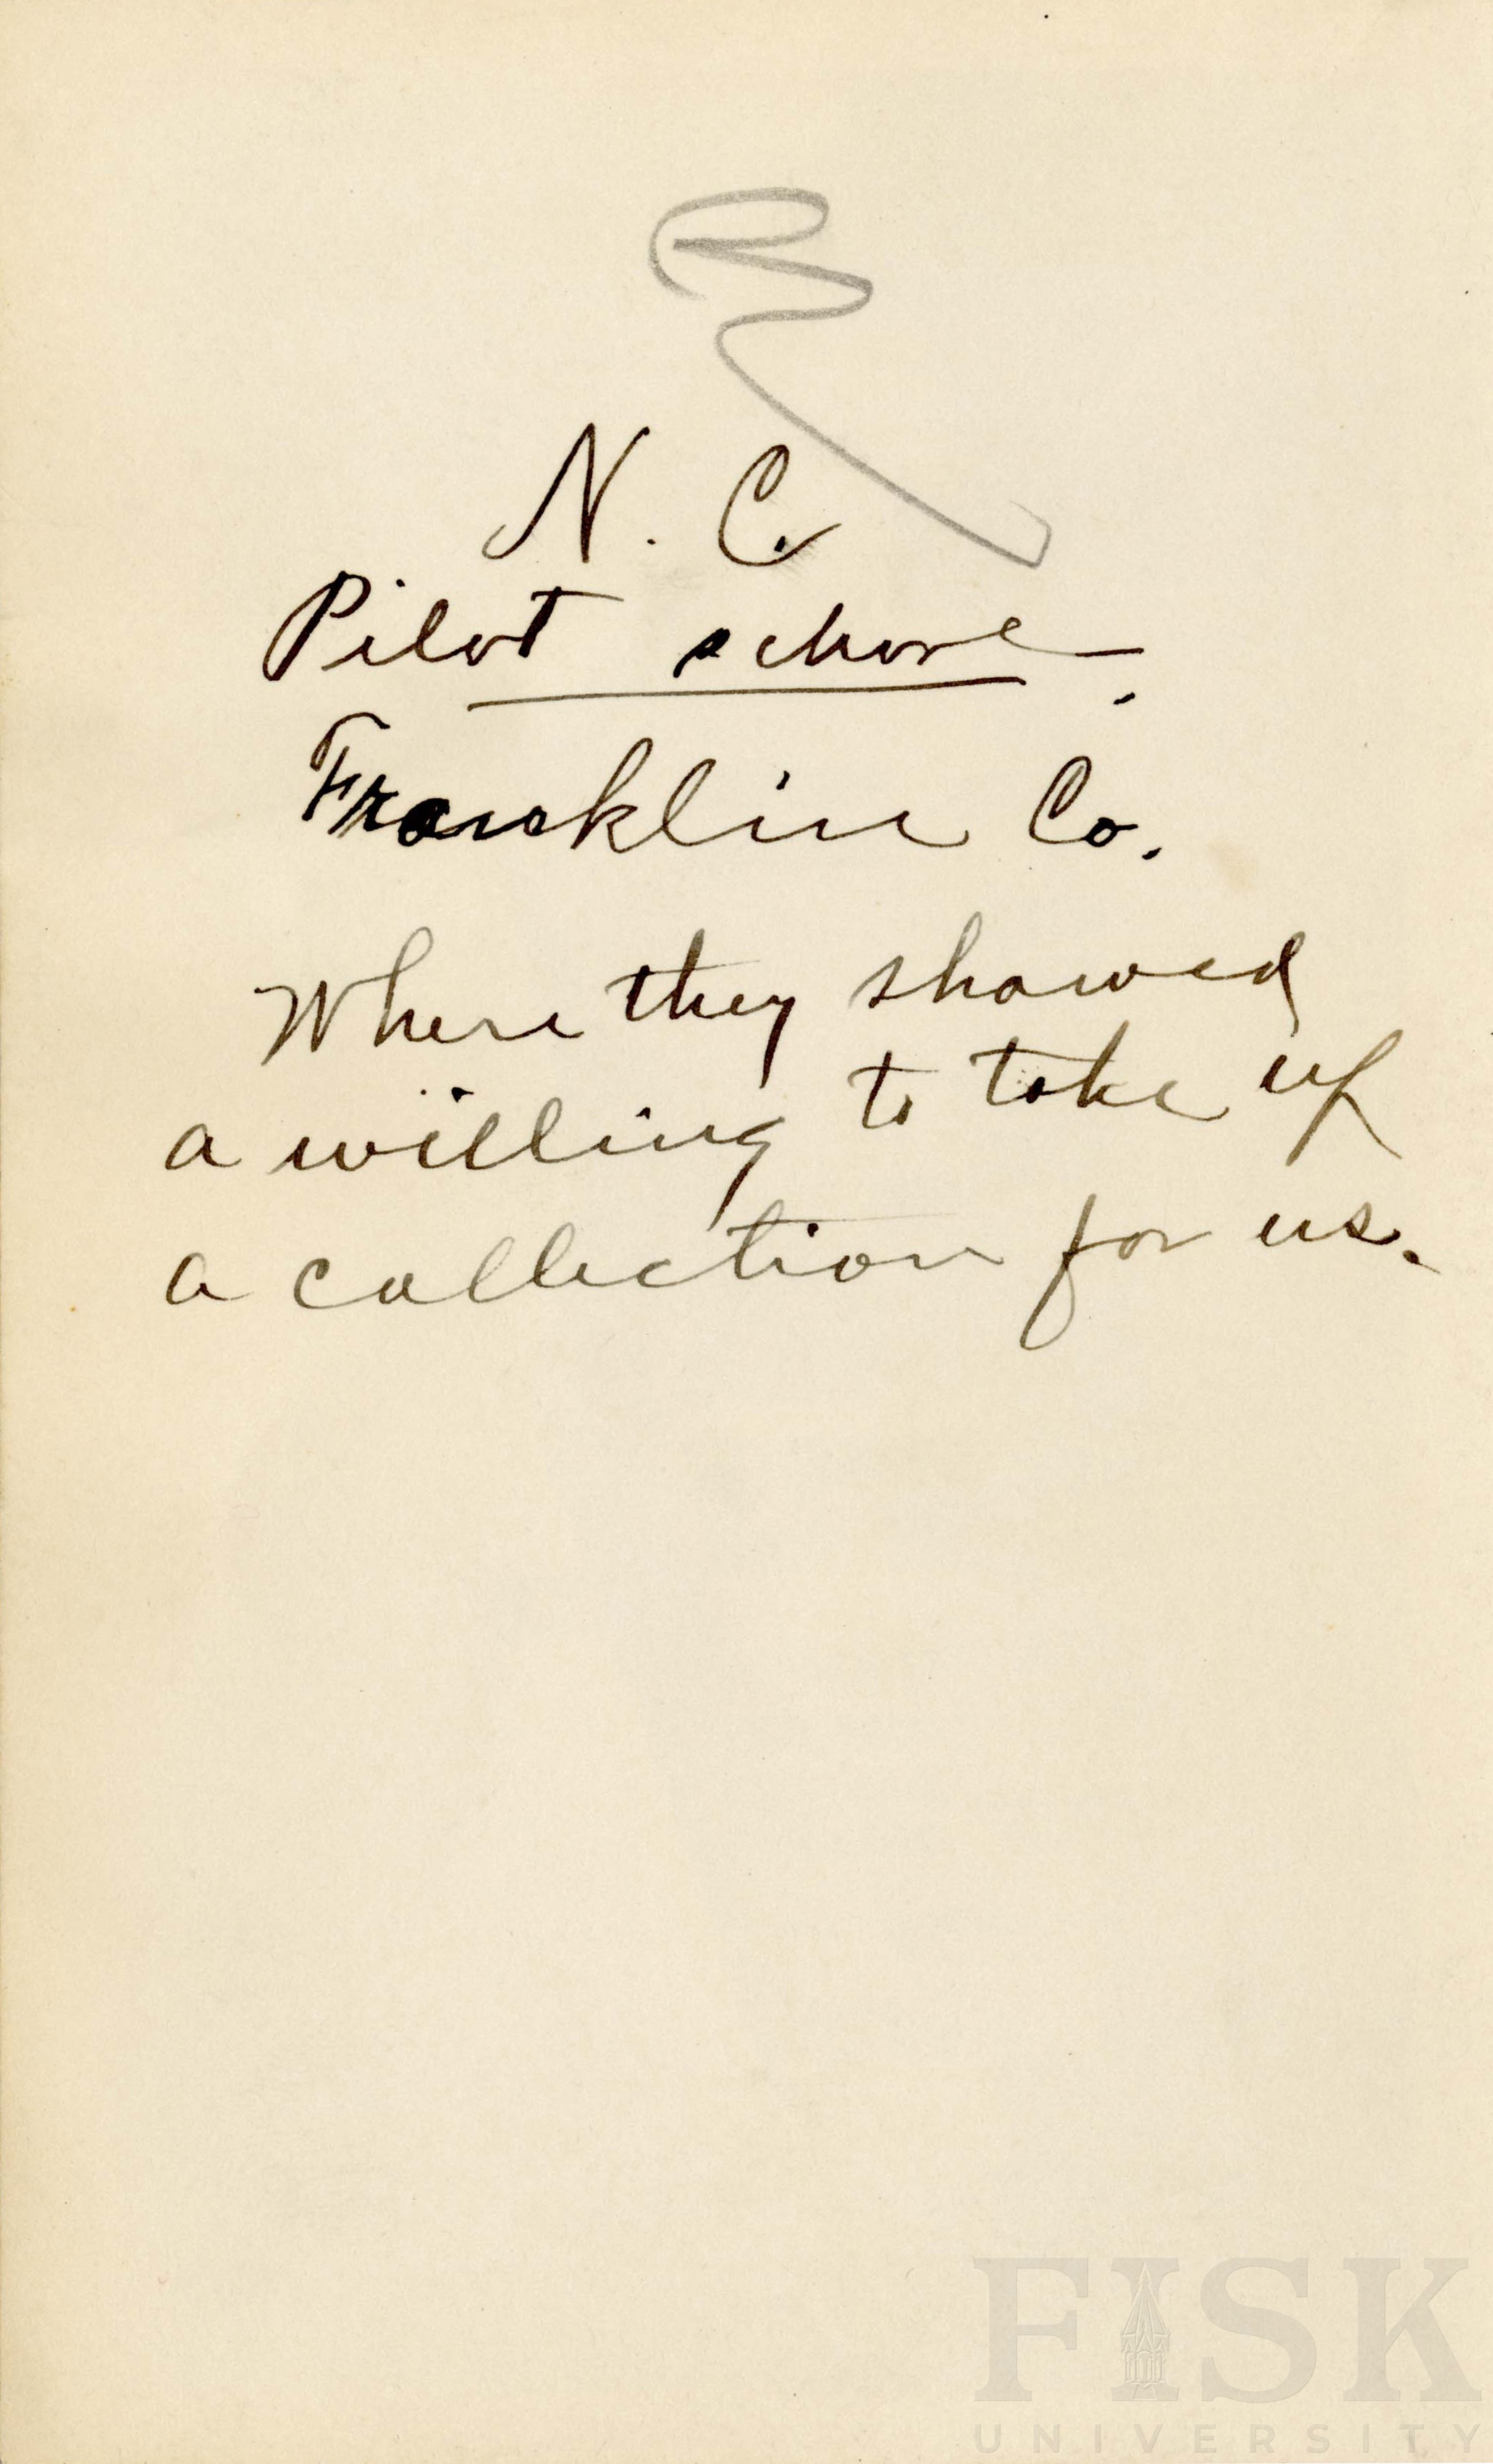 N. C.
Pilot schore.
Franklin Co.
Where they showed
a willing to take up
a collection for us.
FISK
UNIVERSITY